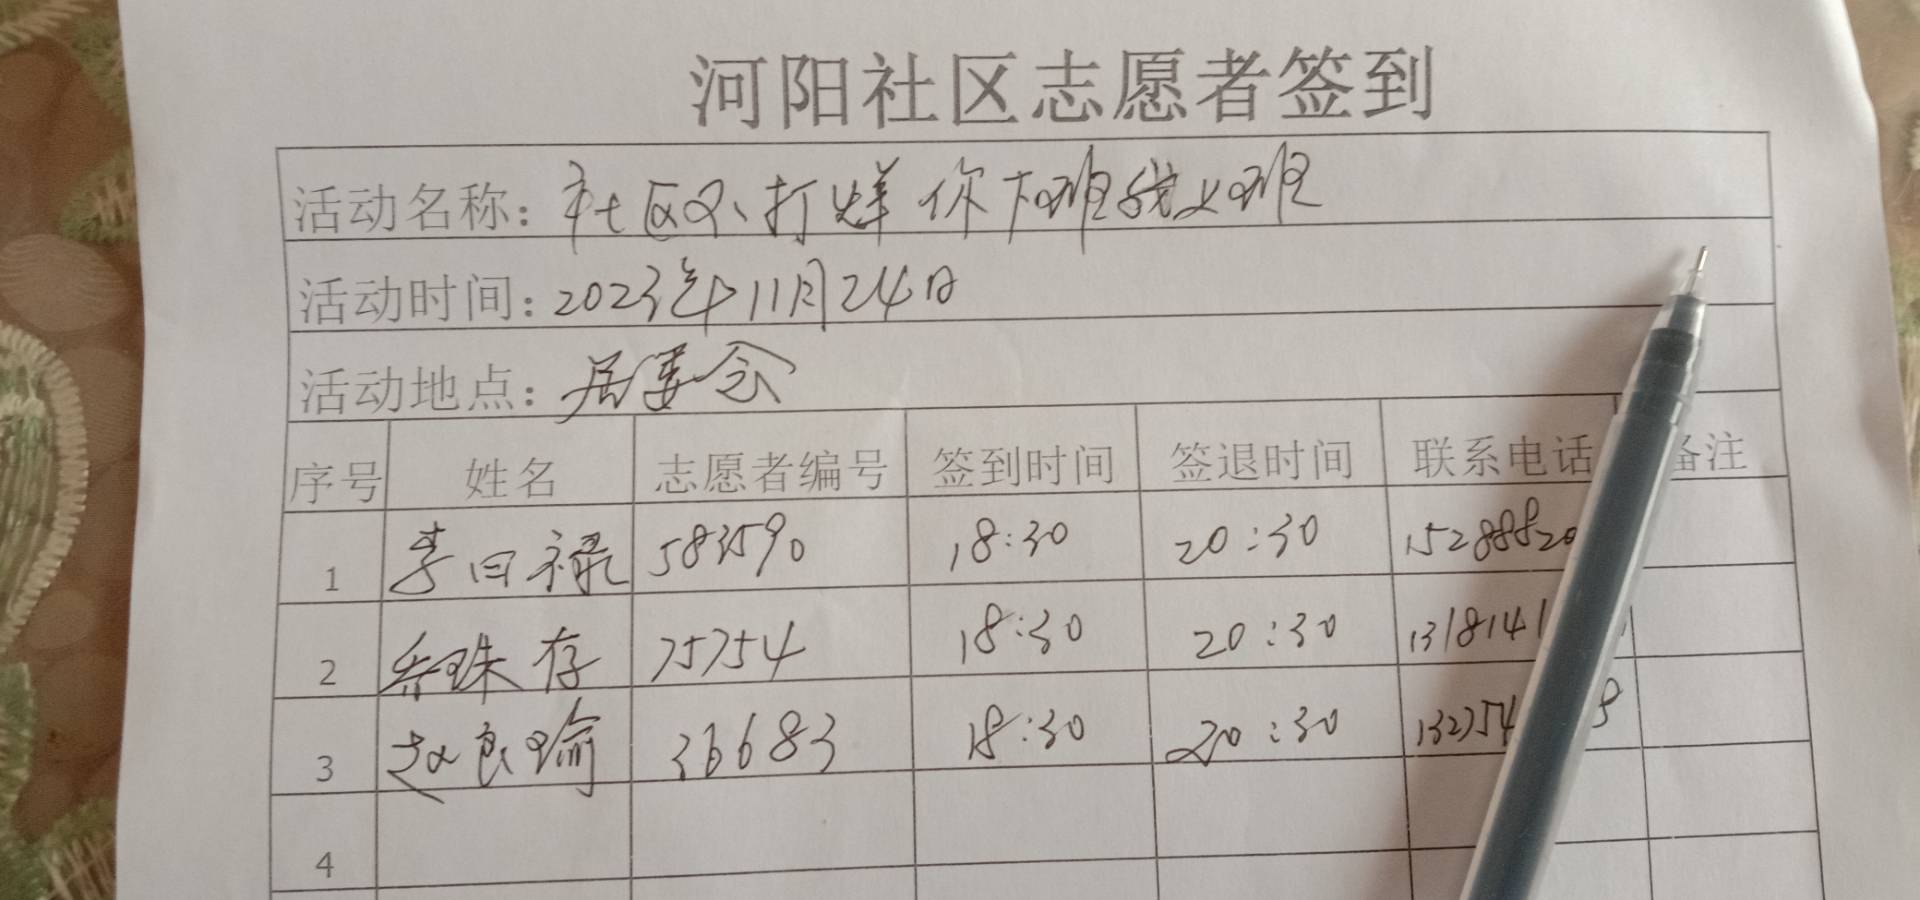 河阳社区志愿者签到
活动名称：社区不打烊 你下班我上班
活动时间：2023年11月24日
活动地点：居委会
序号 姓名 志愿者编号 签到时间 签退时间 联系电话 备注
1 李日禄 583590 18:30 20:30 15288820
2 乔珠存 75754 18:30 20:30 1318141
3 赵良瑜 36683 18:30 20:30 132754 8
4